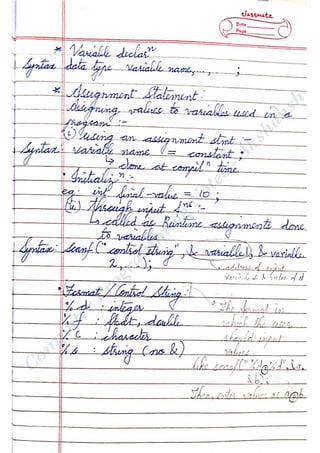 classmate
Date
Page
* Variable declarⁿ
Syntax data type variable name, ..., ;
* Assignment Statement:
Assigning values to variables used in a
program :-
(i) using an assignment stmt :-
Syntax: variable name = constant ;
↳ done at compilⁿ time
• Initializⁿ :-
eg: int final-value = 10 ;
(ii) Through input fⁿˢ :-
↳ called as Runtime assignments done
to variables
Syntax: scanf ("control string", & variable 1, & variable
2, ...);
↳ address of input
variable & value of it
• Format / Control String:
% d : integer
% f : float, double
% c : character
% s : string (no &)
* The format in
which the user
should input
values.
like scanf("%d@%d", &a,
&b);
Then, enter values as a@b